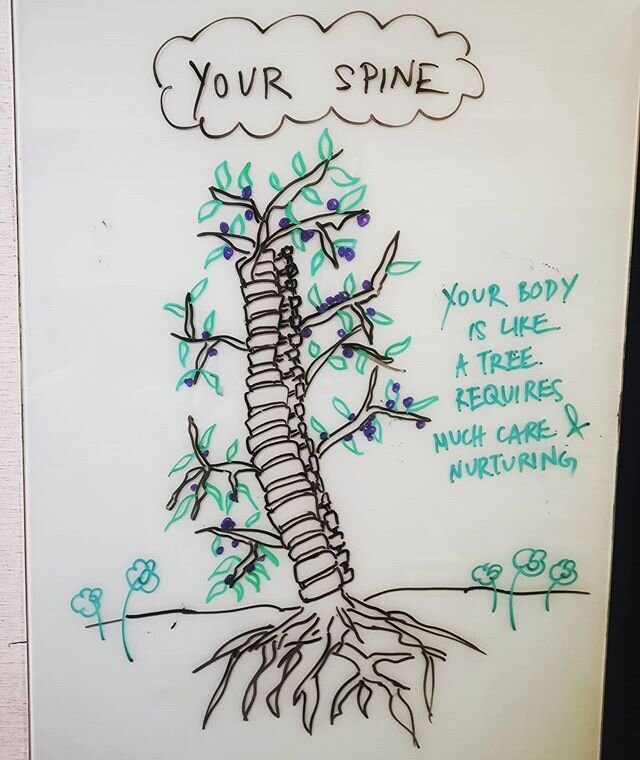 YOUR SPINE
YOUR BODY
IS LIKE
A TREE.
REQUIRES
MUCH CARE &
NURTURING